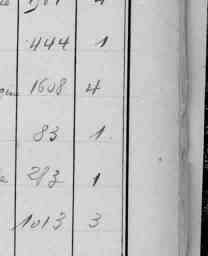 444 1
1608 4
83 1
213 1
1013 3